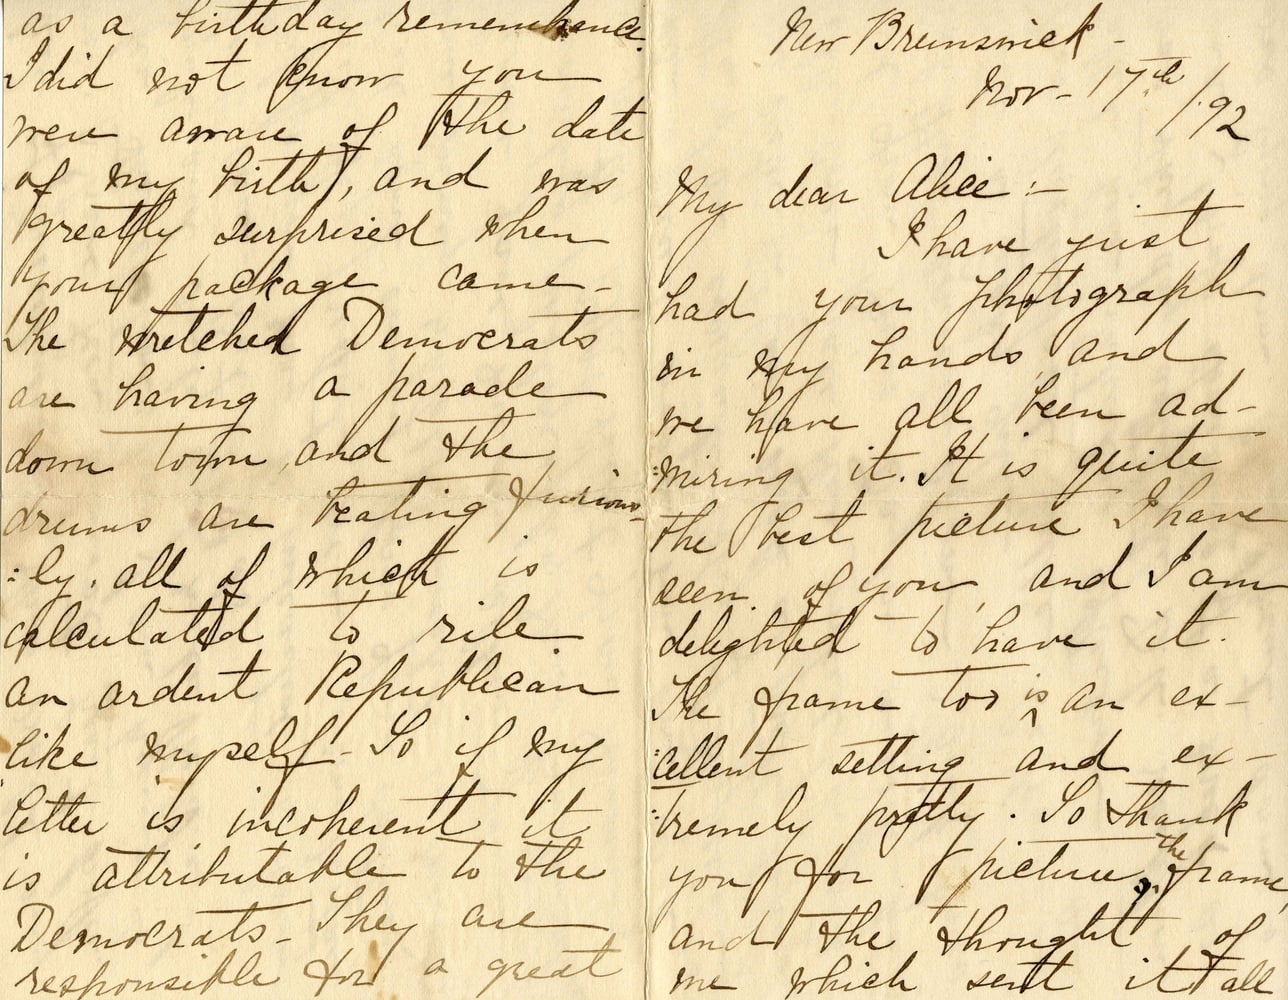 New Brunswick -
Nov - 17th /92
My dear Alice :-
I have just
had your photograph
in my hands and
we have all been ad-
:miring it. It is quite
the best picture I have
seen of you, and I am
delighted to have it.
The frame too is an ex-
:cellent setting and ex-
:tremely pretty. So thank
you for picture, the frame,
and the thought of
me which sent it all
as a birthday remembrance.
I did not know you
were aware of the date
of my birth, and was
greatly surprised when
your package came -
The wretched Democrats
are having a parade
down town, and the
drums are beating furious-
:ly. all of which is
calculated to rile
an ardent Republican
like myself - So if my
letter is incoherent it
is attributable to the
Democrats - They are
responsible for a great